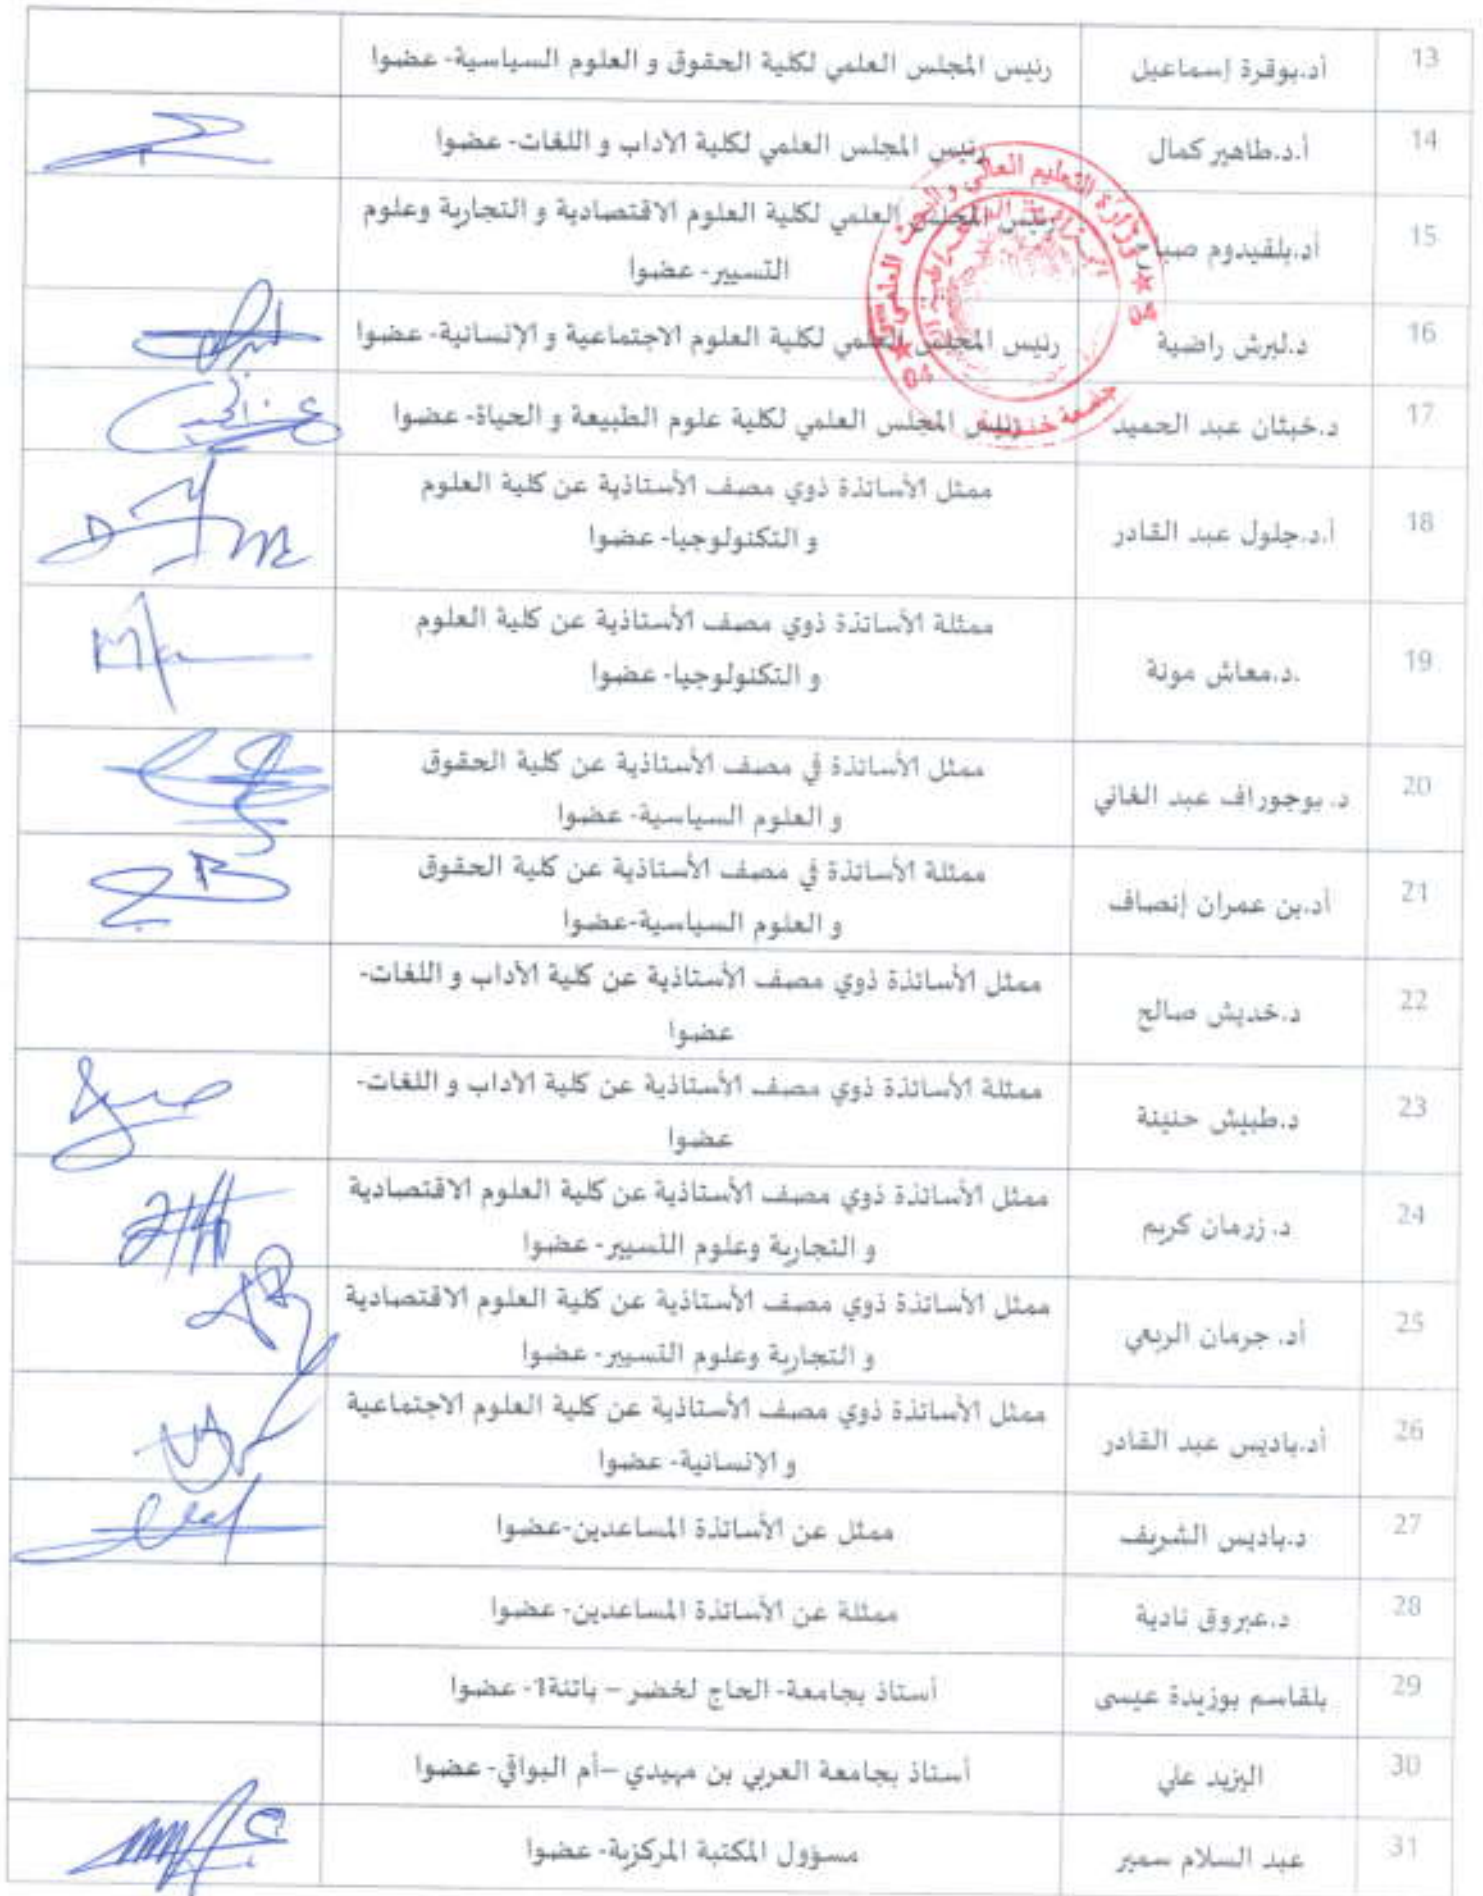 13 أد.بوقرة إسماعيل رئيس المجلس العلمي لكلية الحقوق و العلوم السياسية- عضوا
14 أ.د.طاهير كمال رئيس المجلس العلمي لكلية الآداب و اللغات- عضوا
15 أد.بلقيدوم صباح رئيس المجلس العلمي لكلية العلوم الاقتصادية و التجارية وعلوم
التسيير- عضوا
16 د.لبرش راضية رئيس المجلس العلمي لكلية العلوم الاجتماعية و الإنسانية- عضوا
17 د.خبثان عبد الحميد رئيس المجلس العلمي لكلية علوم الطبيعة و الحياة- عضوا
18 أ.د.جلول عبد القادر ممثل الأساتذة ذوي مصف الأستاذية عن كلية العلوم
و التكنولوجيا- عضوا
19 .د.معاش مونة ممثلة الأساتذة ذوي مصف الأستاذية عن كلية العلوم
و التكنولوجيا- عضوا
20 د. بوجوراف عبد الغاني ممثل الأساتذة في مصف الأستاذية عن كلية الحقوق
و العلوم السياسية- عضوا
21 أد.بن عمران إنصاف ممثلة الأساتذة في مصف الأستاذية عن كلية الحقوق
و العلوم السياسية-عضوا
22 د.خديش صالح ممثل الأساتذة ذوي مصف الأستاذية عن كلية الآداب و اللغات-
عضوا
23 د.طبيش حنينة ممثلة الأساتذة ذوي مصف الأستاذية عن كلية الآداب و اللغات-
عضوا
24 د. زرمان كريم ممثل الأساتذة ذوي مصف الأستاذية عن كلية العلوم الاقتصادية
و التجارية وعلوم التسيير- عضوا
25 أد. جرمان الربعي ممثل الأساتذة ذوي مصف الأستاذية عن كلية العلوم الاقتصادية
و التجارية وعلوم التسيير- عضوا
26 أد.باديس عبد القادر ممثل الأساتذة ذوي مصف الأستاذية عن كلية العلوم الاجتماعية
و الإنسانية- عضوا
27 د.باديس الشريف ممثل عن الأساتذة المساعدين-عضوا
28 د.عبروق نادية ممثلة عن الأساتذة المساعدين- عضوا
29 بلقاسم بوزيدة عيسى أستاذ بجامعة- الحاج لخضر – باتنة1- عضوا
30 اليزيد علي أستاذ بجامعة العربي بن مهيدي –أم البواقي- عضوا
31 عبد السلام سمير مسؤول المكتبة المركزية- عضوا
وزارة التعليم العالي و البحث العلمي
04
04